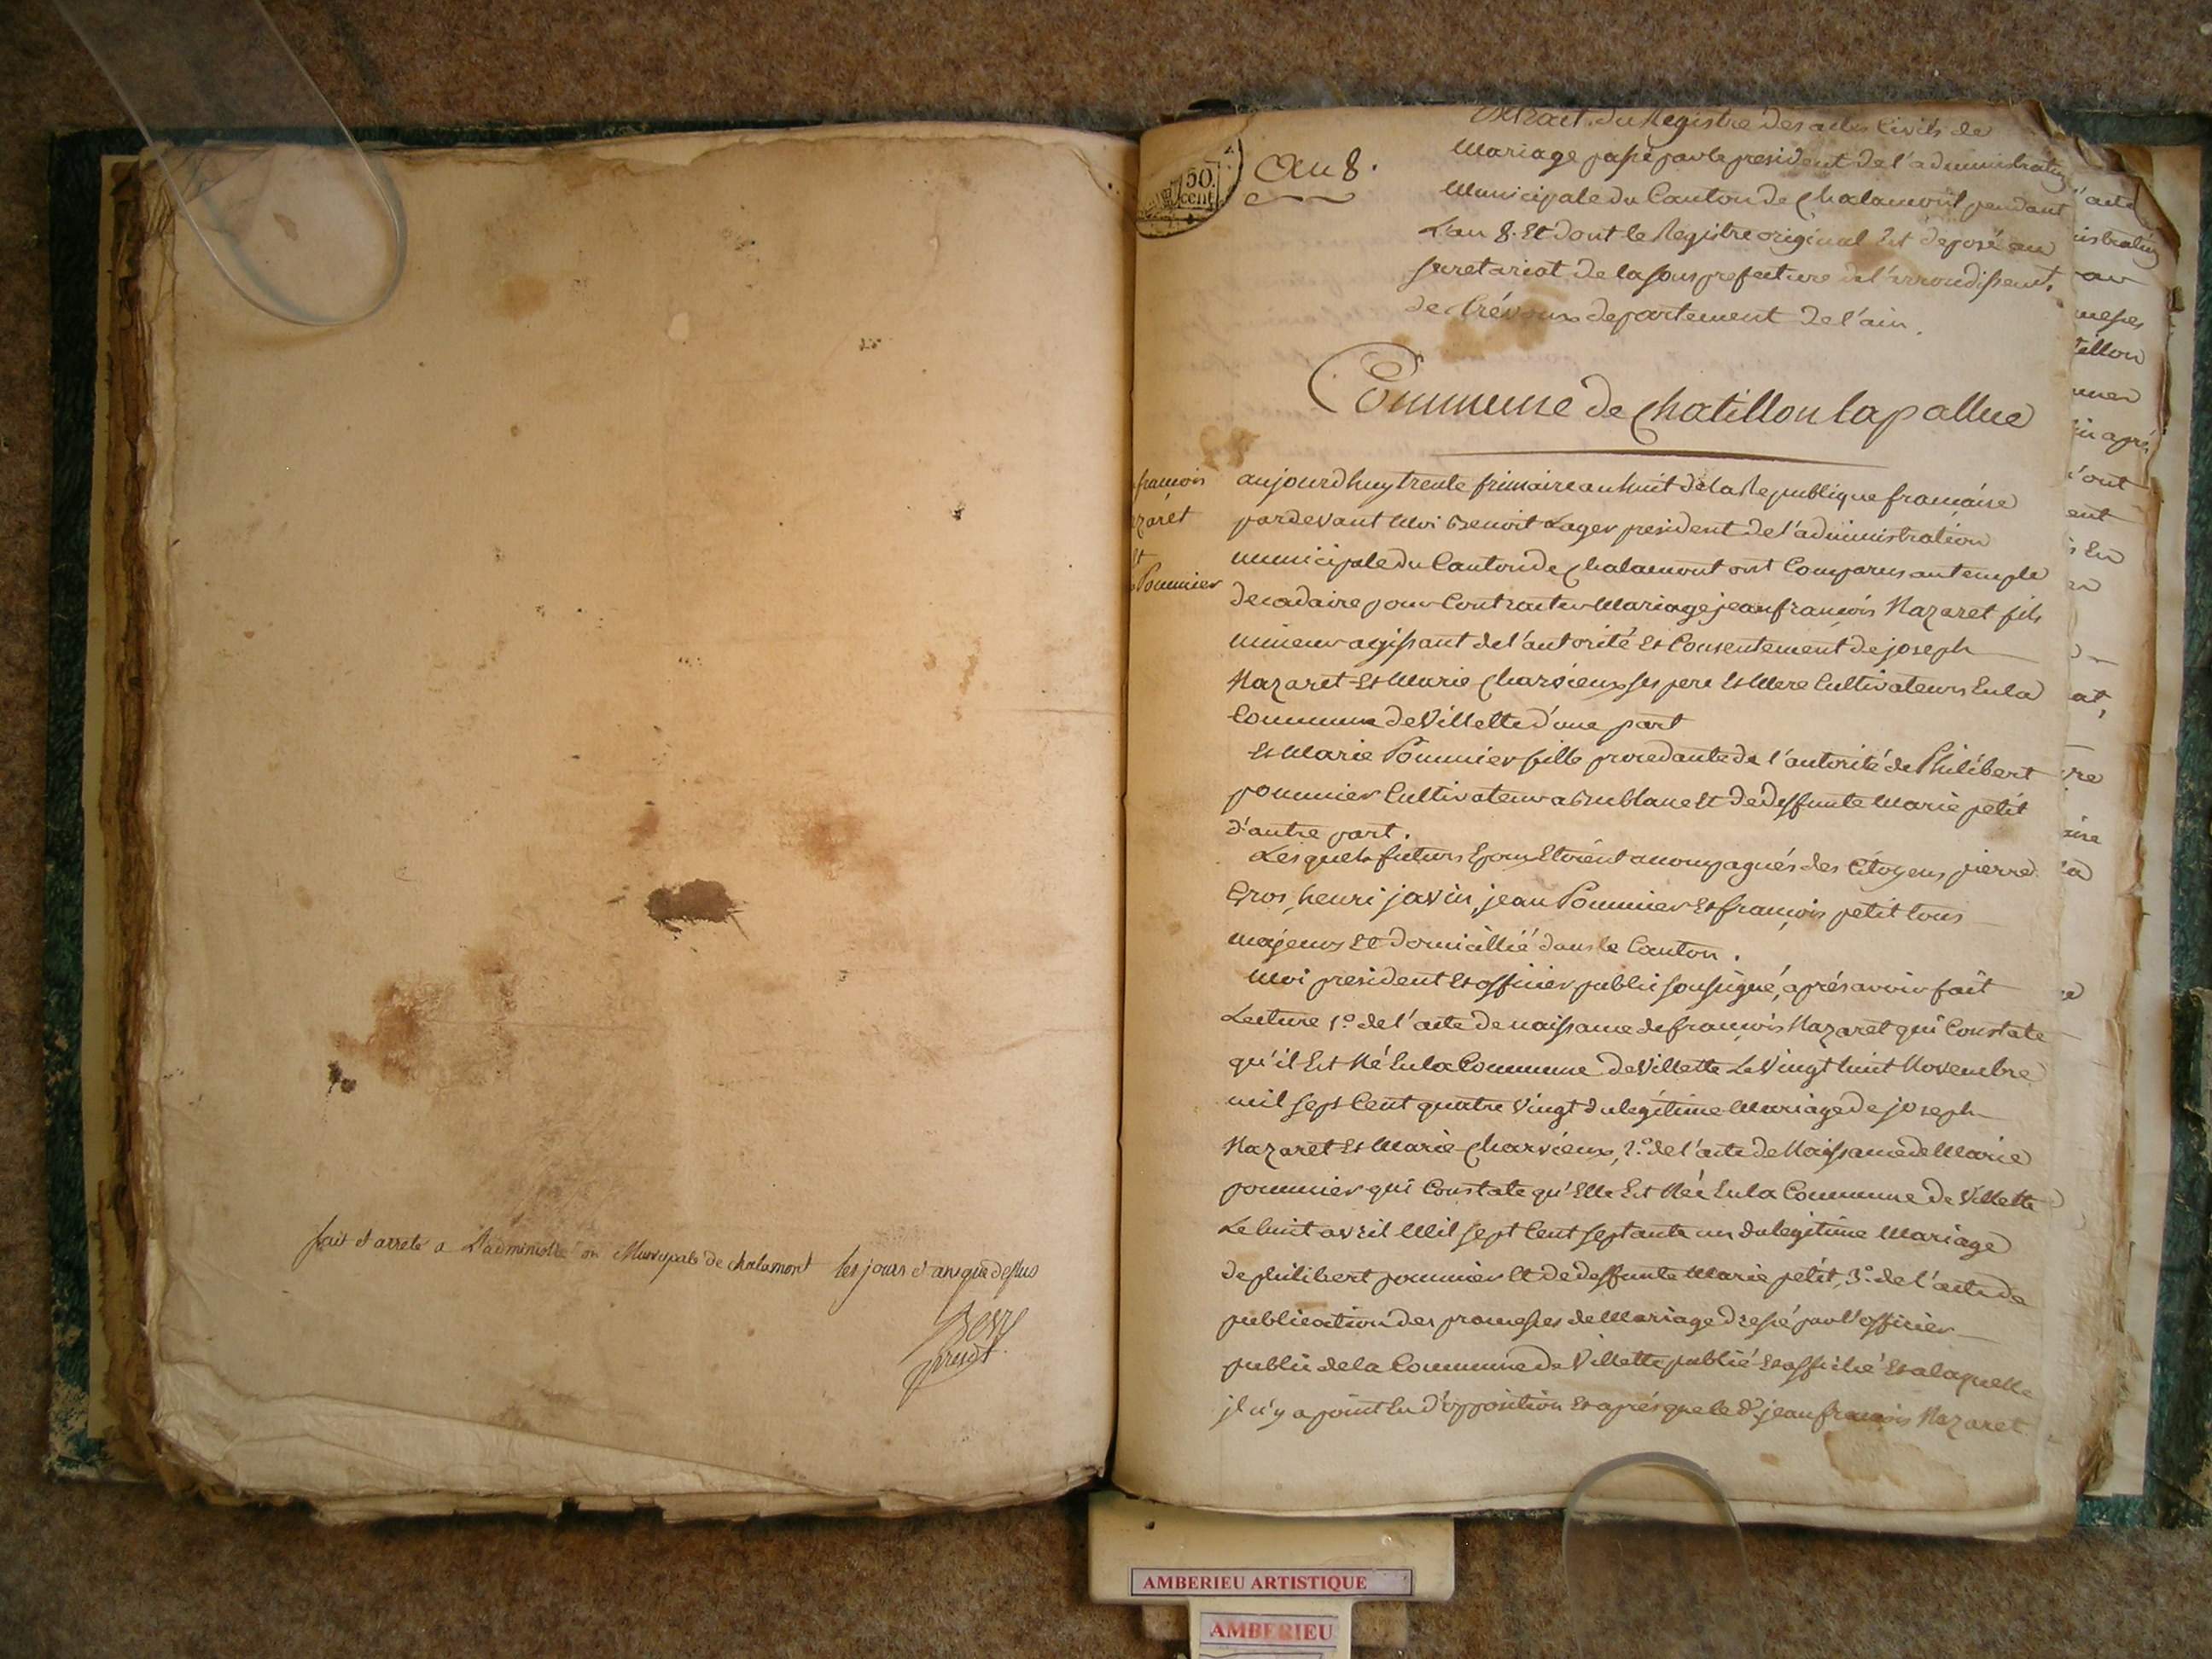 fait et arreté a L'administr on Municipale de chalamont les jours et ans que dessus
presdt.
50.
cent
An 8.
Extrait du Registre des actes Civils de
Mariage passé par le president de l'administration
Municipale du Canton de Chalamont pendant
L'an 8. Et dont le Registre original Est deposé au
secretariat de la sous prefecture de l'arrondissemt.
de trévoux departement de l'ain.
Commune de Chatillon lapallue
françois
zaret
et
Pommier
aujourdhuy trente frimaire an huit de la Republique française
pardevant Moi Benoit Lager president de l'administration
municipale du Canton de Chalamont ont Comparus au temple
decadaire pour Contracter Mariage jean françois Nazaret fils
mineur agissant de l'autorité Et Consentement de joseph
Nazaret Et Marie Charvieux ses pere Et Mere Cultivateurs En la
Commune de Villette d'une part
Et Marie Pommier fille procedante de l'autorité de Philibert
pommier Cultivateur a Et de deffunte Marie petit
d'autre part.
Lesquels futurs Epoux Etoient accompagnés des Citoyens pierre
Gros, henri javin, jean Pommier Et françois petit tous
majeurs Et domicillié dans le Canton.
Moi president Et officier public soussigné, aprés avoir fait
Lecture 1.º de l'acte de naissance de françois Nazaret qui Constate
qu'il Est Né En la Commune de Villette Le Vingt huit Novembre
mil sept Cent quatre Vingt du legitime Mariage de joseph
Nazaret Et Marie Charvieux, 2.º de l'acte de Naissance de Marie
pommier qui Constate qu'Elle Est Née En la Commune de Villette
Le huit avril Mil sept Cent septante un du legitime Mariage
de philibert pommier Et de deffunte Marie petit, 3.º de l'acte de
publication des promesses de Mariage dressé par l'officier
public de la Commune de Villette publié Et affiché Et a laquelle
jl n'y a point Eu d'opposition Et aprés que le d. jean françois Nazaret
AMBERIEU ARTISTIQUE
AMBERIEU